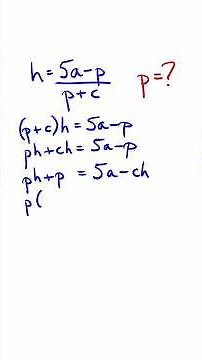 h = 5a-p / p+c p = ?
(p+c)h = 5a-p
ph+ch = 5a-p
ph+p = 5a-ch
p(